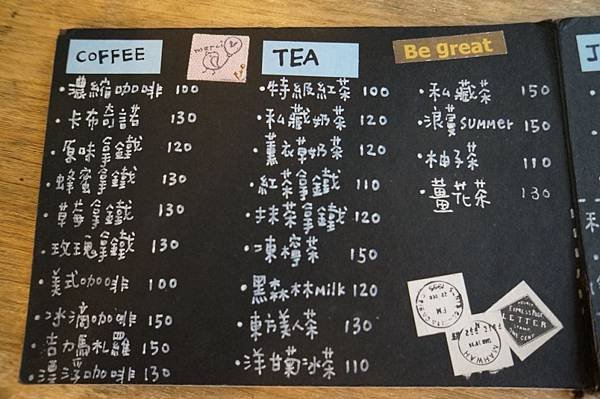 COFFEE
·濃縮咖啡 100
·卡布奇諾 130
·原味拿鐵 120
·蜂蜜拿鐵 130
·草莓拿鐵 130
·玫瑰拿鐵 130
·美式咖啡 100
·冰滴咖啡 150
·吉力馬札羅 150
·漂浮咖啡 130
merci
TEA
·特級紅茶 100
·私藏奶茶 120
·薰衣草奶茶 120
·紅茶拿鐵 110
·抹茶拿鐵 120
·凍檸茶 150
·黑森林Milk 120
·東方美人茶 130
·洋甘菊冰茶 110
Be great
·私藏茶 150
·浪漫SUMMER 150
·柚子茶 110
·薑花茶 130
EXPRESS POST
LETTER
MAHWAH
J